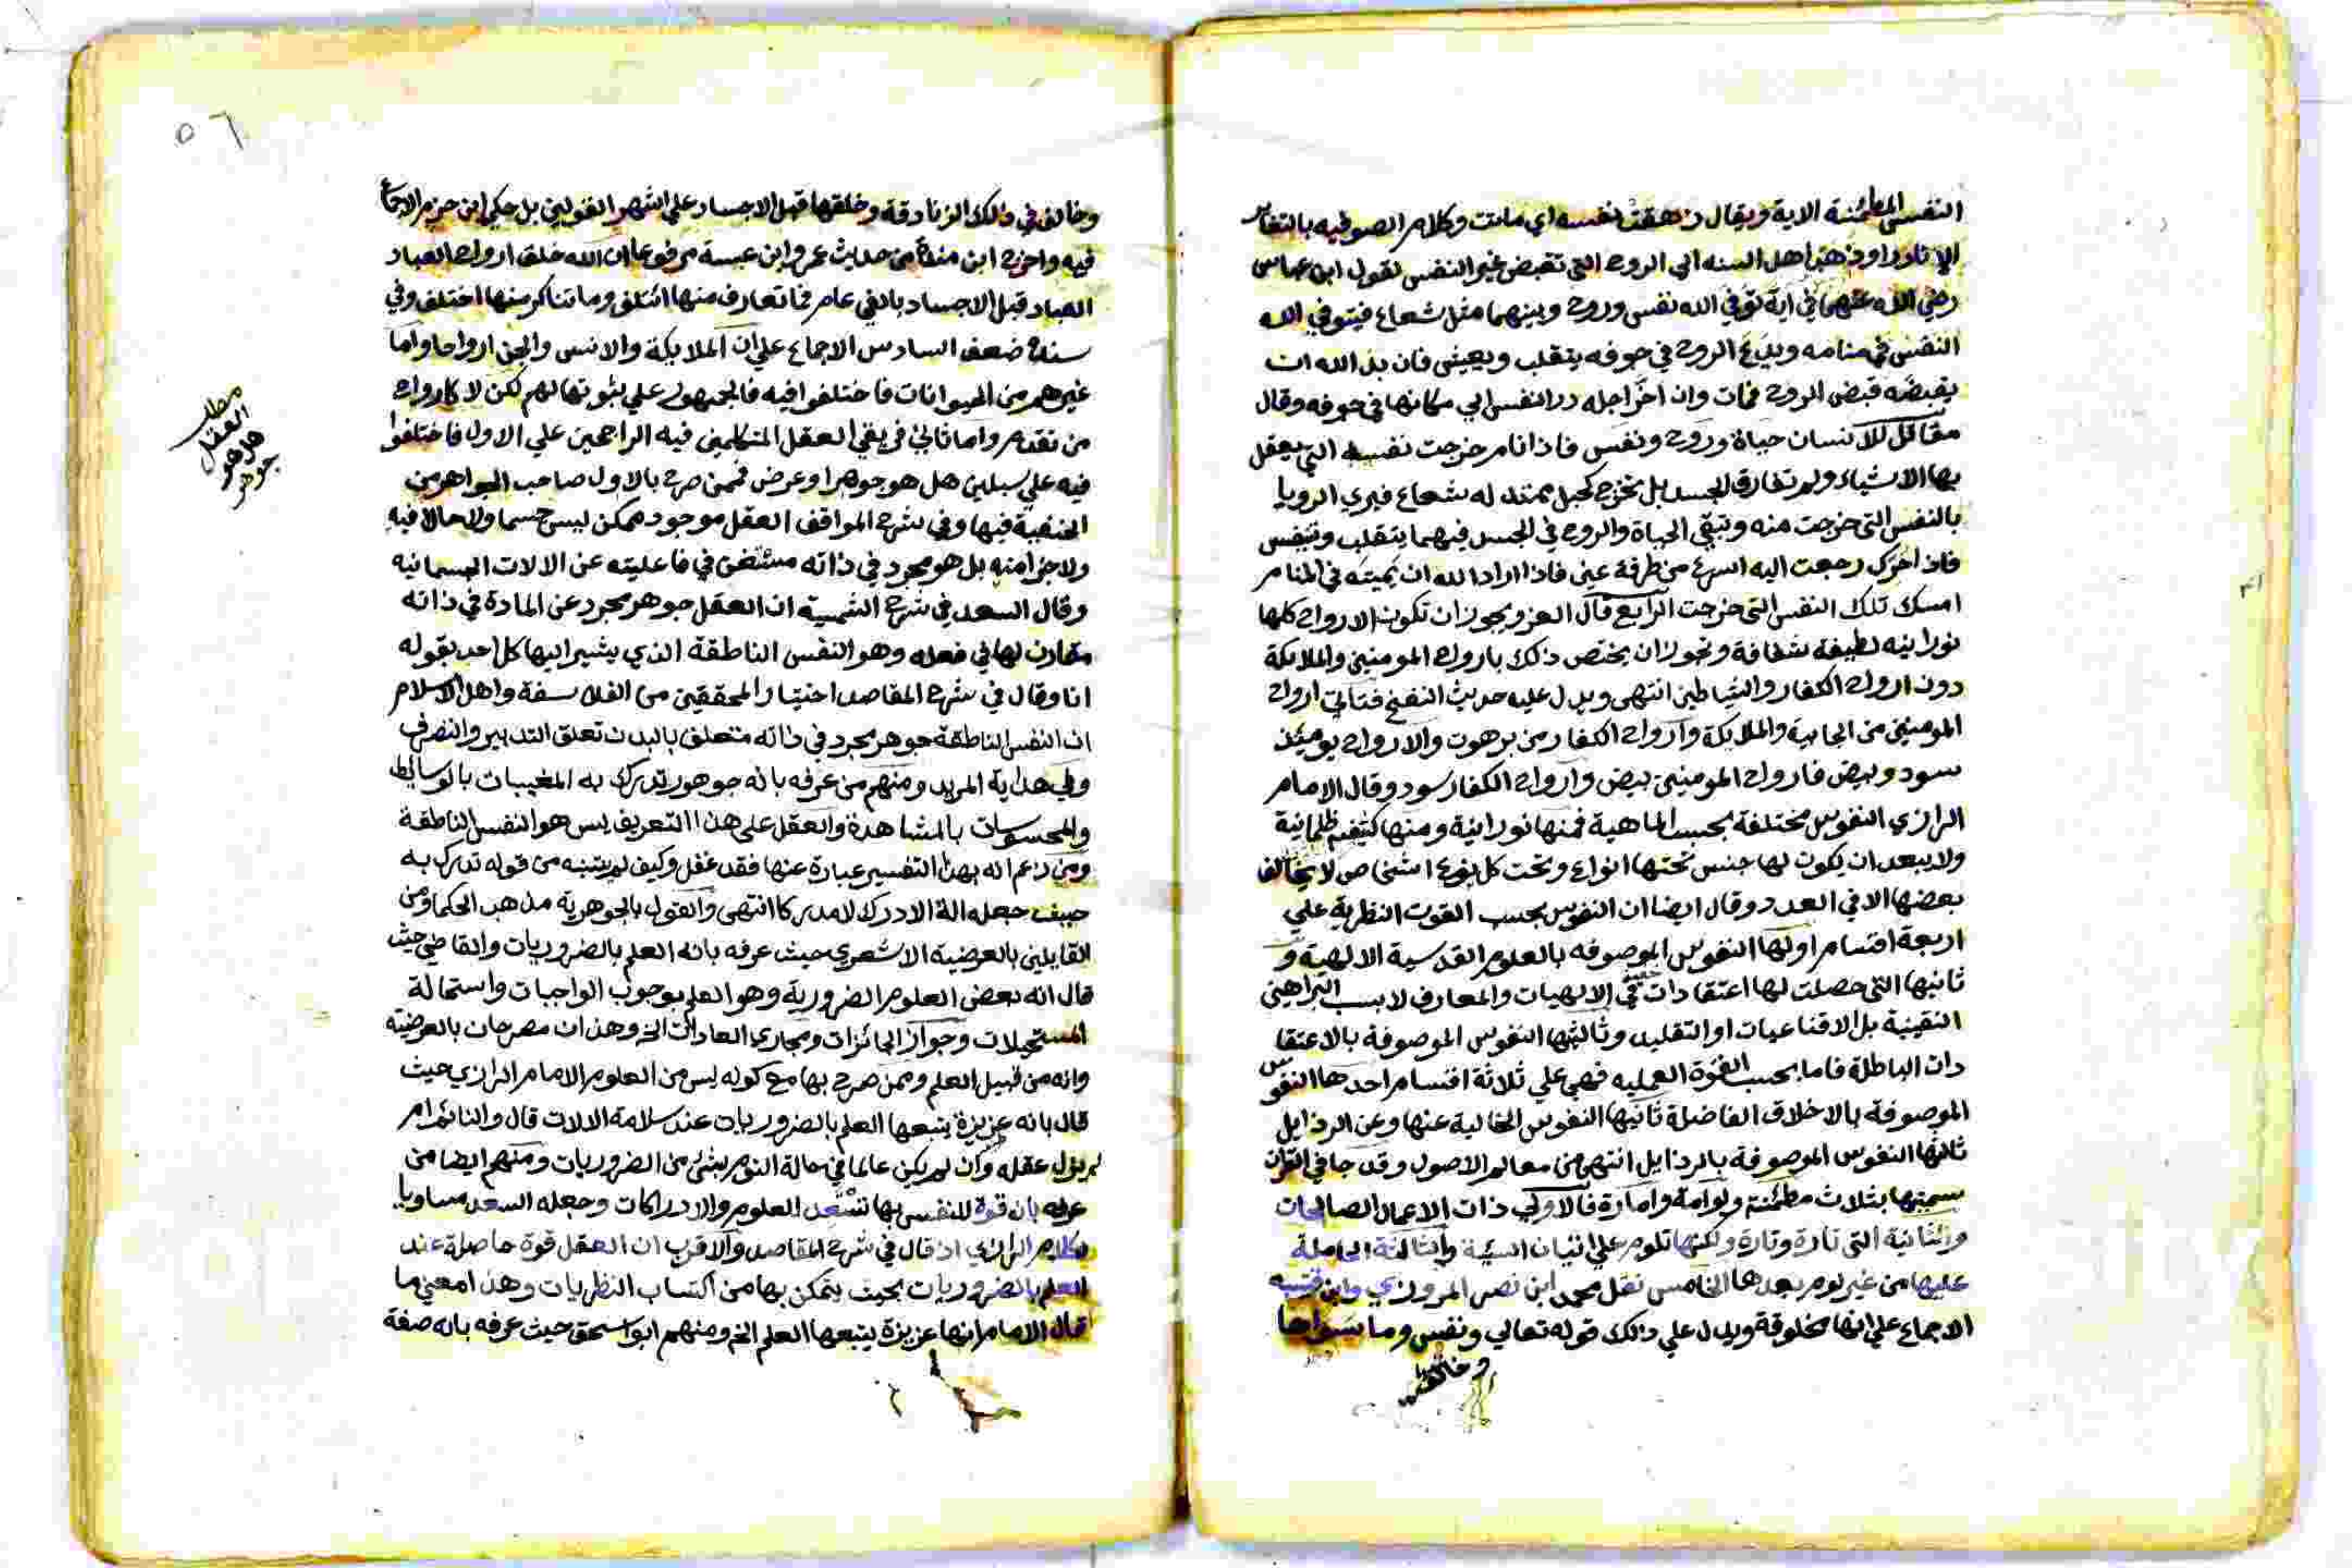 النفس المطمئنة الاية ويقال زهقت نفسه اي ماتت وكلام الصوفيه بالتغاير
الا نادرا وذهب اهل السنه الي الروح التي تقبض غير النفس لقول ابن عباس
رضي الله عنهما في اية توفي الله نفس وروح وبينهما مثل شعاع فيتوفي الله
النفس في منامه ويدع الروح في جوفه يتقلب ويعيش فان بدا لله ان
يقبضه قبض الروح فمات وان اخر اجله رد النفس الي مكانها في جوفه وقال
مقاتل للانسان حياة وروح ونفس فاذا نام خرجت نفسه التي يعقل
بها الاشياء ولم تفارق الجسد بل تخرج كحبل ممتد له شعاع فيري الرويا
بالنفس التي خرجت منه وتبقي الحياة والروح في الجسد فبهما يتقلب ويتنفس
فاذا حرك رجعت اليه اسرع من طرفة عين فاذا اراد الله ان يميته في المنام
امسك تلك النفس التي خرجت الرابع قال العز ويجوز ان تكون الارواح كلها
نورانيه لطيفة شفافة ويجوز ان يختص ذلك بارواح المومنين والملايكة
دون ارواح الكفار والشياطين انتهي ويدل عليه حديث النفخ فتاتي ارواح
المومنين من الجابية والملايكة وارواح الكفار من برهوت والارواح يوميئذ
سود وبيض فارواح المومنين بيض وارواح الكفار سود وقال الامام
الرازي النفوس مختلفة بحسب الماهية فمنها نورانية ومنها كثيفه ظلمانية
ولا يبعد ان يكون لها جنس تحتها انواع وتحت كل نوع اشخاص لا يخالف
بعضها الا في العدد وقال ايضا ان النفوس بحسب القوت النظرية علي
اربعة اقسام اولها النفوس الموصوفه بالعلوم القدسية الالهية و
ثانيها التي حصلت لها اعتقادات حقية في الالهيات والمعارف لا بسبب البراهين
اليقينية بل الاقناعيات او التقليد وثالثها النفوس الموصوفة بالاعتقا
دات الباطلة فاما بحسب القوة العمليه فهي علي ثلاثة اقسام احدها النفوس
الموصوفة بالاخلاق الفاضلة ثانيها النفوس الخالية عنها وعن الرذايل
ثالثها النفوس الموصوفة بالرذايل انتهي من معالم الاصول وقد جا في القران
سميتها بثلاث مطمئنة ولوامة وامارة فالاولي ذات الاعمال الصالحات
والثانية التي تارة وتارة ولكنها تلوم علي اتيان السيئة والثالثة الحاملة
عليها من غير لوم بعدها الخامس نقل محمد ابن نصر المروزي وابن قتيبه
الاجماع علي انها مخلوقة ويدل علي ذلك قوله تعالي ونفس وما سواها
وخالف
٥٦
وخالف في ذلك الزنادقة وخلقها قبل الاجساد علي اشهر القولين بل حكي ابن حزم الاجماع
فيه واخرج ابن مندة من حديث عمرو ابن عبسة مرفوعا ان الله خلق ارواح العباد
العباد قبل الاجساد بالفي عام فما تعارف منها ائتلف وما تناكر منها اختلف وفي
سنده ضعف السادس الاجماع علي ان الملايكة والانس والجن ارواحا واما
غيرهم من الحيوانات فاختلفوا فيه فالجمهور علي ثبوتها لهم لكن لا كارواح
من تقدم واما ثاني فريقي العقل المتكلمين فيه الراجحين علي الاول فاختلفوا
فيه علي سبلين هل هو جوهر او عرض فممن صرح بالاول صاحب الجواهر من
الحنفية فيها وفي شرح المواقف العقل موجود ممكن ليس جسما ولا حالا فيه
ولا جزا منه بل هو مجرد في ذاته مستغن في فاعليته عن الالات الجسمانيه
وقال السعد في شرح الشمسية ان العقل جوهر مجرد عن المادة في ذاته
مقارن لها في فعله وهو النفس الناطقة الذي يشير اليها كل احد بقوله
انا وقال في شرح المقاصد اختيار المحققين من الفلاسفة واهل الاسلام
ان النفس الناطقة جوهر مجرد في ذاته متعلق بالبدن تعلق التدبير والتصرف
وفي هداية المريد ومنهم من عرفه بانه جوهر تدرك به المغيبات بالوسايط
والمحسوسات بالمشاهدة والعقل علي هذا التعريف ليس هو النفس الناطقة
ومن زعم انه بهذا التفسير عبارة عنها فقد غفل وكيف لم يتنبه من قوله تدرك به
حيث جعله الة الادراك لا مدركا انتهي والقول بالجوهرية مذهب الحكما ومن
القايلين بالعرضية الاشعري حيث عرفه بانه العلم بالضروريات والقاضي حيث
قال انه بعض العلوم الضرورية وهو العلم بوجوب الواجبات واستحالة
المستحيلات وجواز الجائزات ومجاري العادات الخ وهذان مصرحان بالعرضية
وانه من قبيل العلم وممن صرح بها مع كونه ليس من العلوم الامام الرازي حيث
قال بانه غريزة يتبعها العلم بالضروريات عند سلامة الالات قال والنائم
لم يزل عقله وان لم يكن عالما في حالة النوم بشئ من الضروريات ومنهم ايضا من
عرفه بان قوة للنفس بها تستعد للعلوم والادراكات وجعله السعد مساويا
لكلام الرازي اذ قال في شرح المقاصد والاقرب ان العقل قوة حاصلة عند
العلم بالضروريات بحيث يتمكن بها من اكتساب النظريات وهذا معني ما
قال الامام انها غريزة يتبعها العلم الخ ومنهم ابو اسحق حيث عرفه بانه صفة
مطلب
العقل
هل هو
جوهر